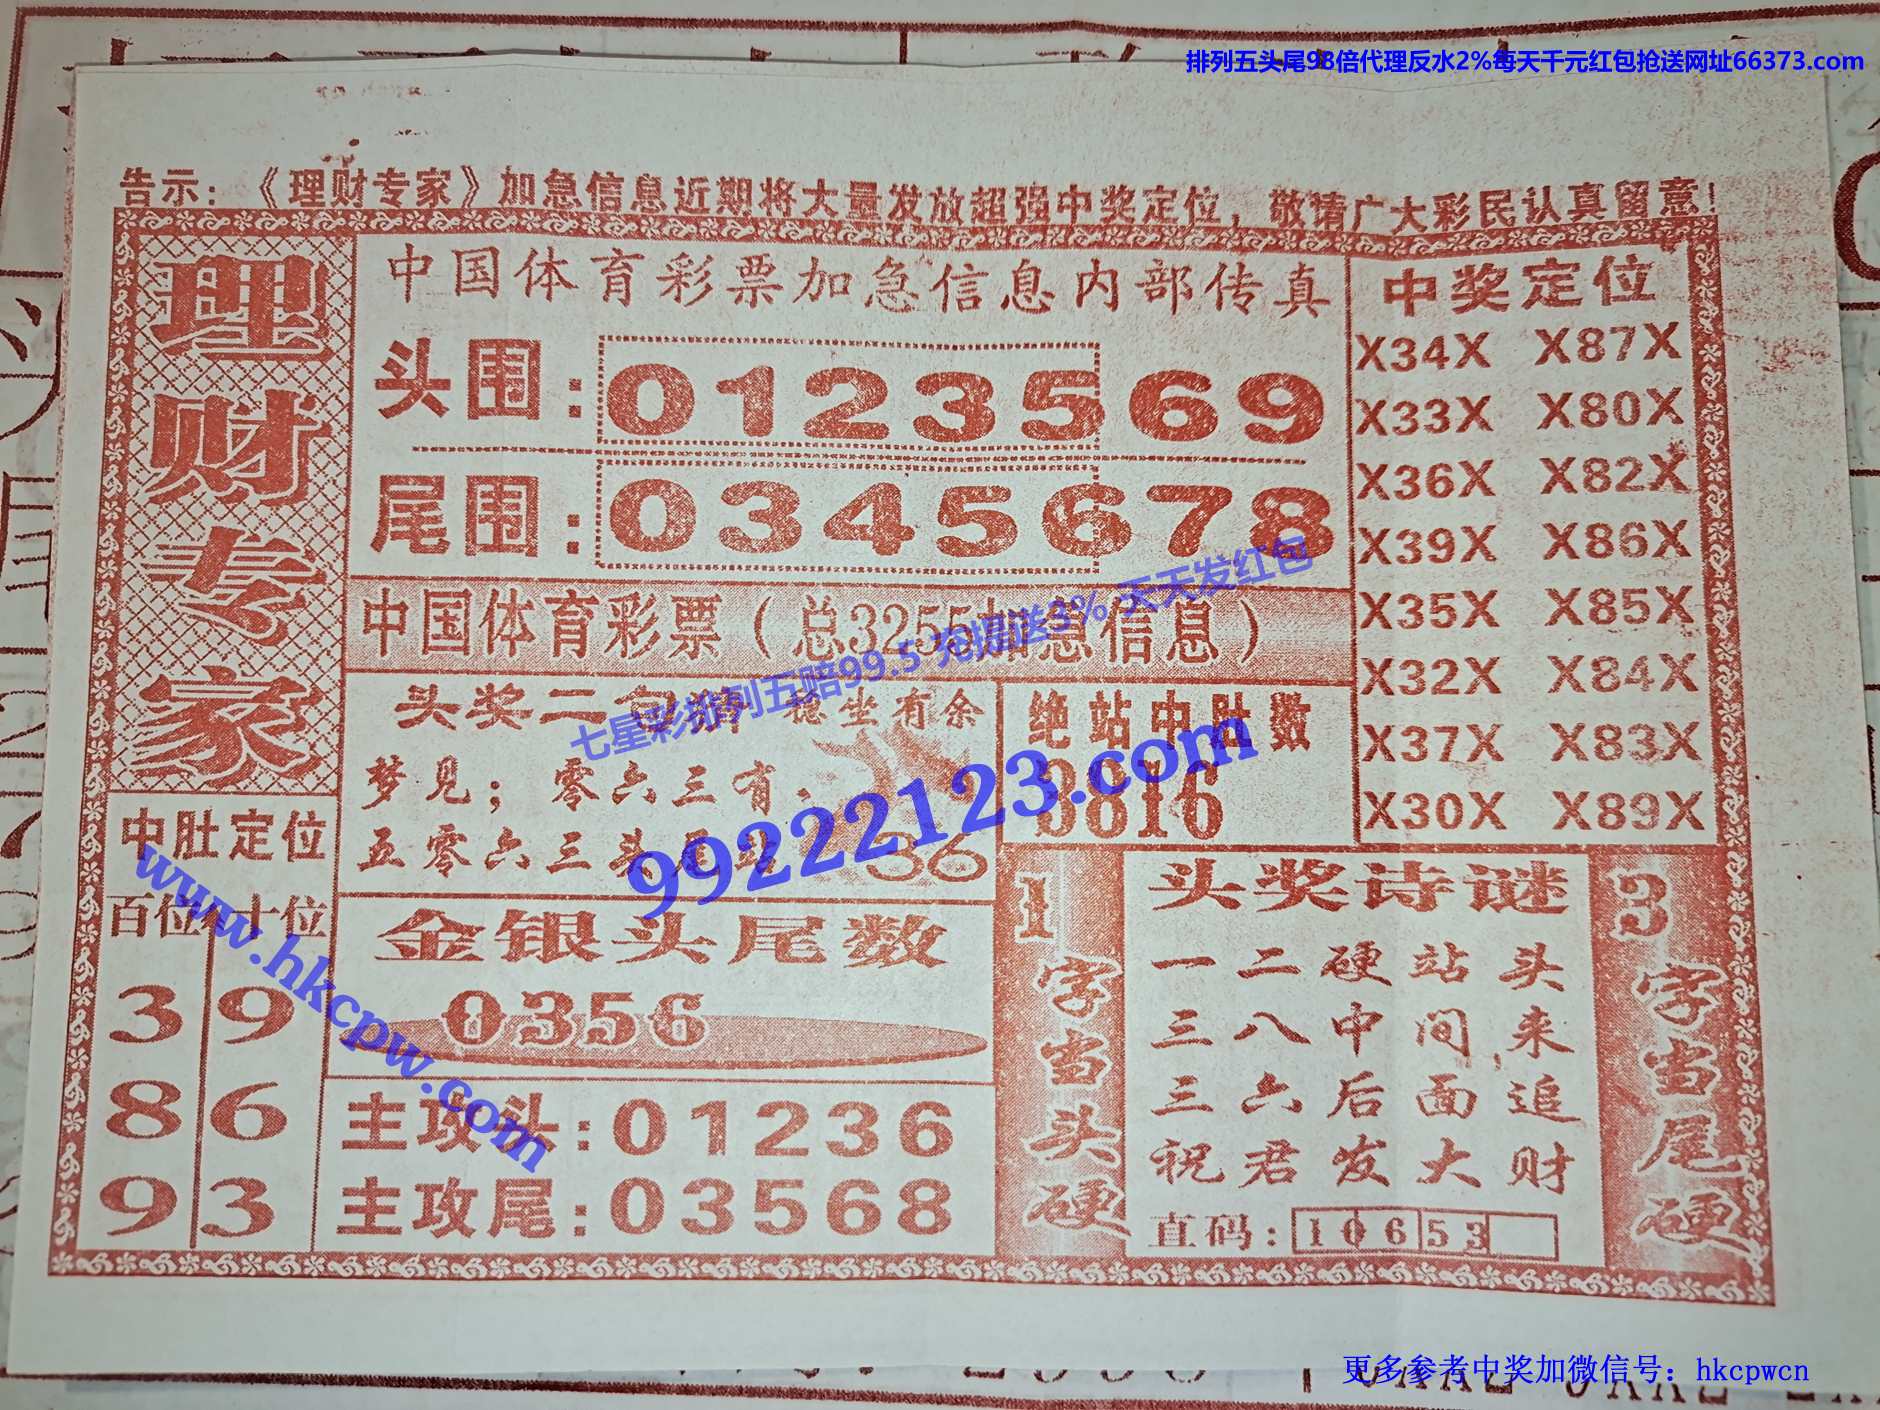 排列五头尾98倍代理反水2%每天千元红包抢送网址66373.com
告示：《理财专家》加急信息近期将大量发放超强中奖定位，敬请广大彩民认真留意！
理财专家
中国体育彩票加急信息内部传真
头围：0123569
尾围：0345678
中奖定位
X34X X87X
X33X X80X
X36X X82X
X39X X86X
X35X X85X
X32X X84X
X37X X83X
X30X X89X
中国体育彩票（总3255加急信息）
七星彩排列五赔99.5 充提送3% 天天发红包
头奖二 坐有余
梦见；零六三有、
五零六三头尾站
36
绝站中肚数
3816
99222123.com
中肚定位
百位 十位
3 9
8 6
9 3
www.hkcpw.com
金银头尾数
0356
主攻头：01236
主攻尾：03568
1字当头硬
头奖诗谜
一二硬站头
三八中间来
三六后面追
祝君发大财
直码：10653
3字当尾硬
更多参考中奖加微信号：hkcpwcn